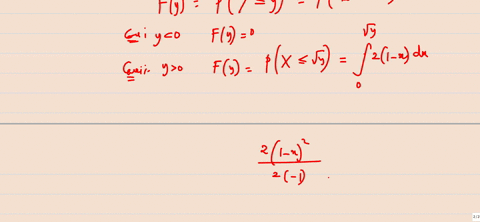 F(y) = P(Y ≤ y) =
Case i y<0 F(y)=0
Case ii. y>0 F(y) = P(X ≤ √y) = ∫₀^√y 2(1-x) dx
2(1-x)² / 2(-1)
2/2